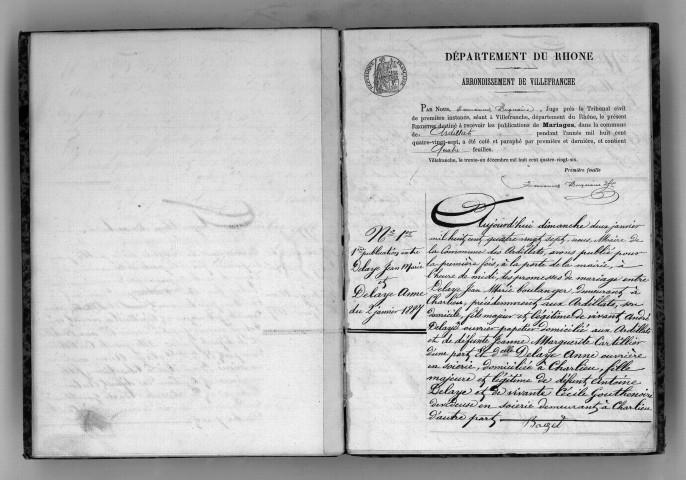 DÉPARTEMENT DU RHONE
ARRONDISSEMENT DE VILLEFRANCHE
PAR NOUS, Juge près le Tribunal civil
de première instance, séant à Villefranche, département du Rhône, le présent
REGISTRE destiné à recevoir les publications de Mariages, dans la commune
de Ardillats pendant l'année mil huit cent
quatre-vingt-sept, a été coté et paraphé par première et dernière, et contient
Quatre feuilles.
Villefranche, le trente-un décembre mil huit cent quatre-vingt-six.
Première feuille
No 1er
1re publication entre
Delaye Jean Marie
et
Delaye Anne
du 2 janvier 1887
Aujourd'hui dimanche deux janvier
mil huit cent quatre vingt sept, nous Maire de
la Commune des Ardillats, avons publié pour
la première fois, à la porte de la mairie, à
l'heure de midi, les promesses de mariage entre
Delaye Jean Marie boulanger, demeurant à
Charlieu, précédemment aux Ardillats, son
domicile, fils majeur et légitime de vivant André
Delaye ouvrier papetier domicilié aux Ardillats
et de défunte Jeanne Marguerite
d'une part et Delle Delaye Anne ouvrière
en soierie, domiciliée à Charlieu, fille
majeure et légitime de défunt Antoine
Delaye et de vivante Cécile Gouthenoire
dévideuse en soierie demeurant à Charlieu
d'autre part